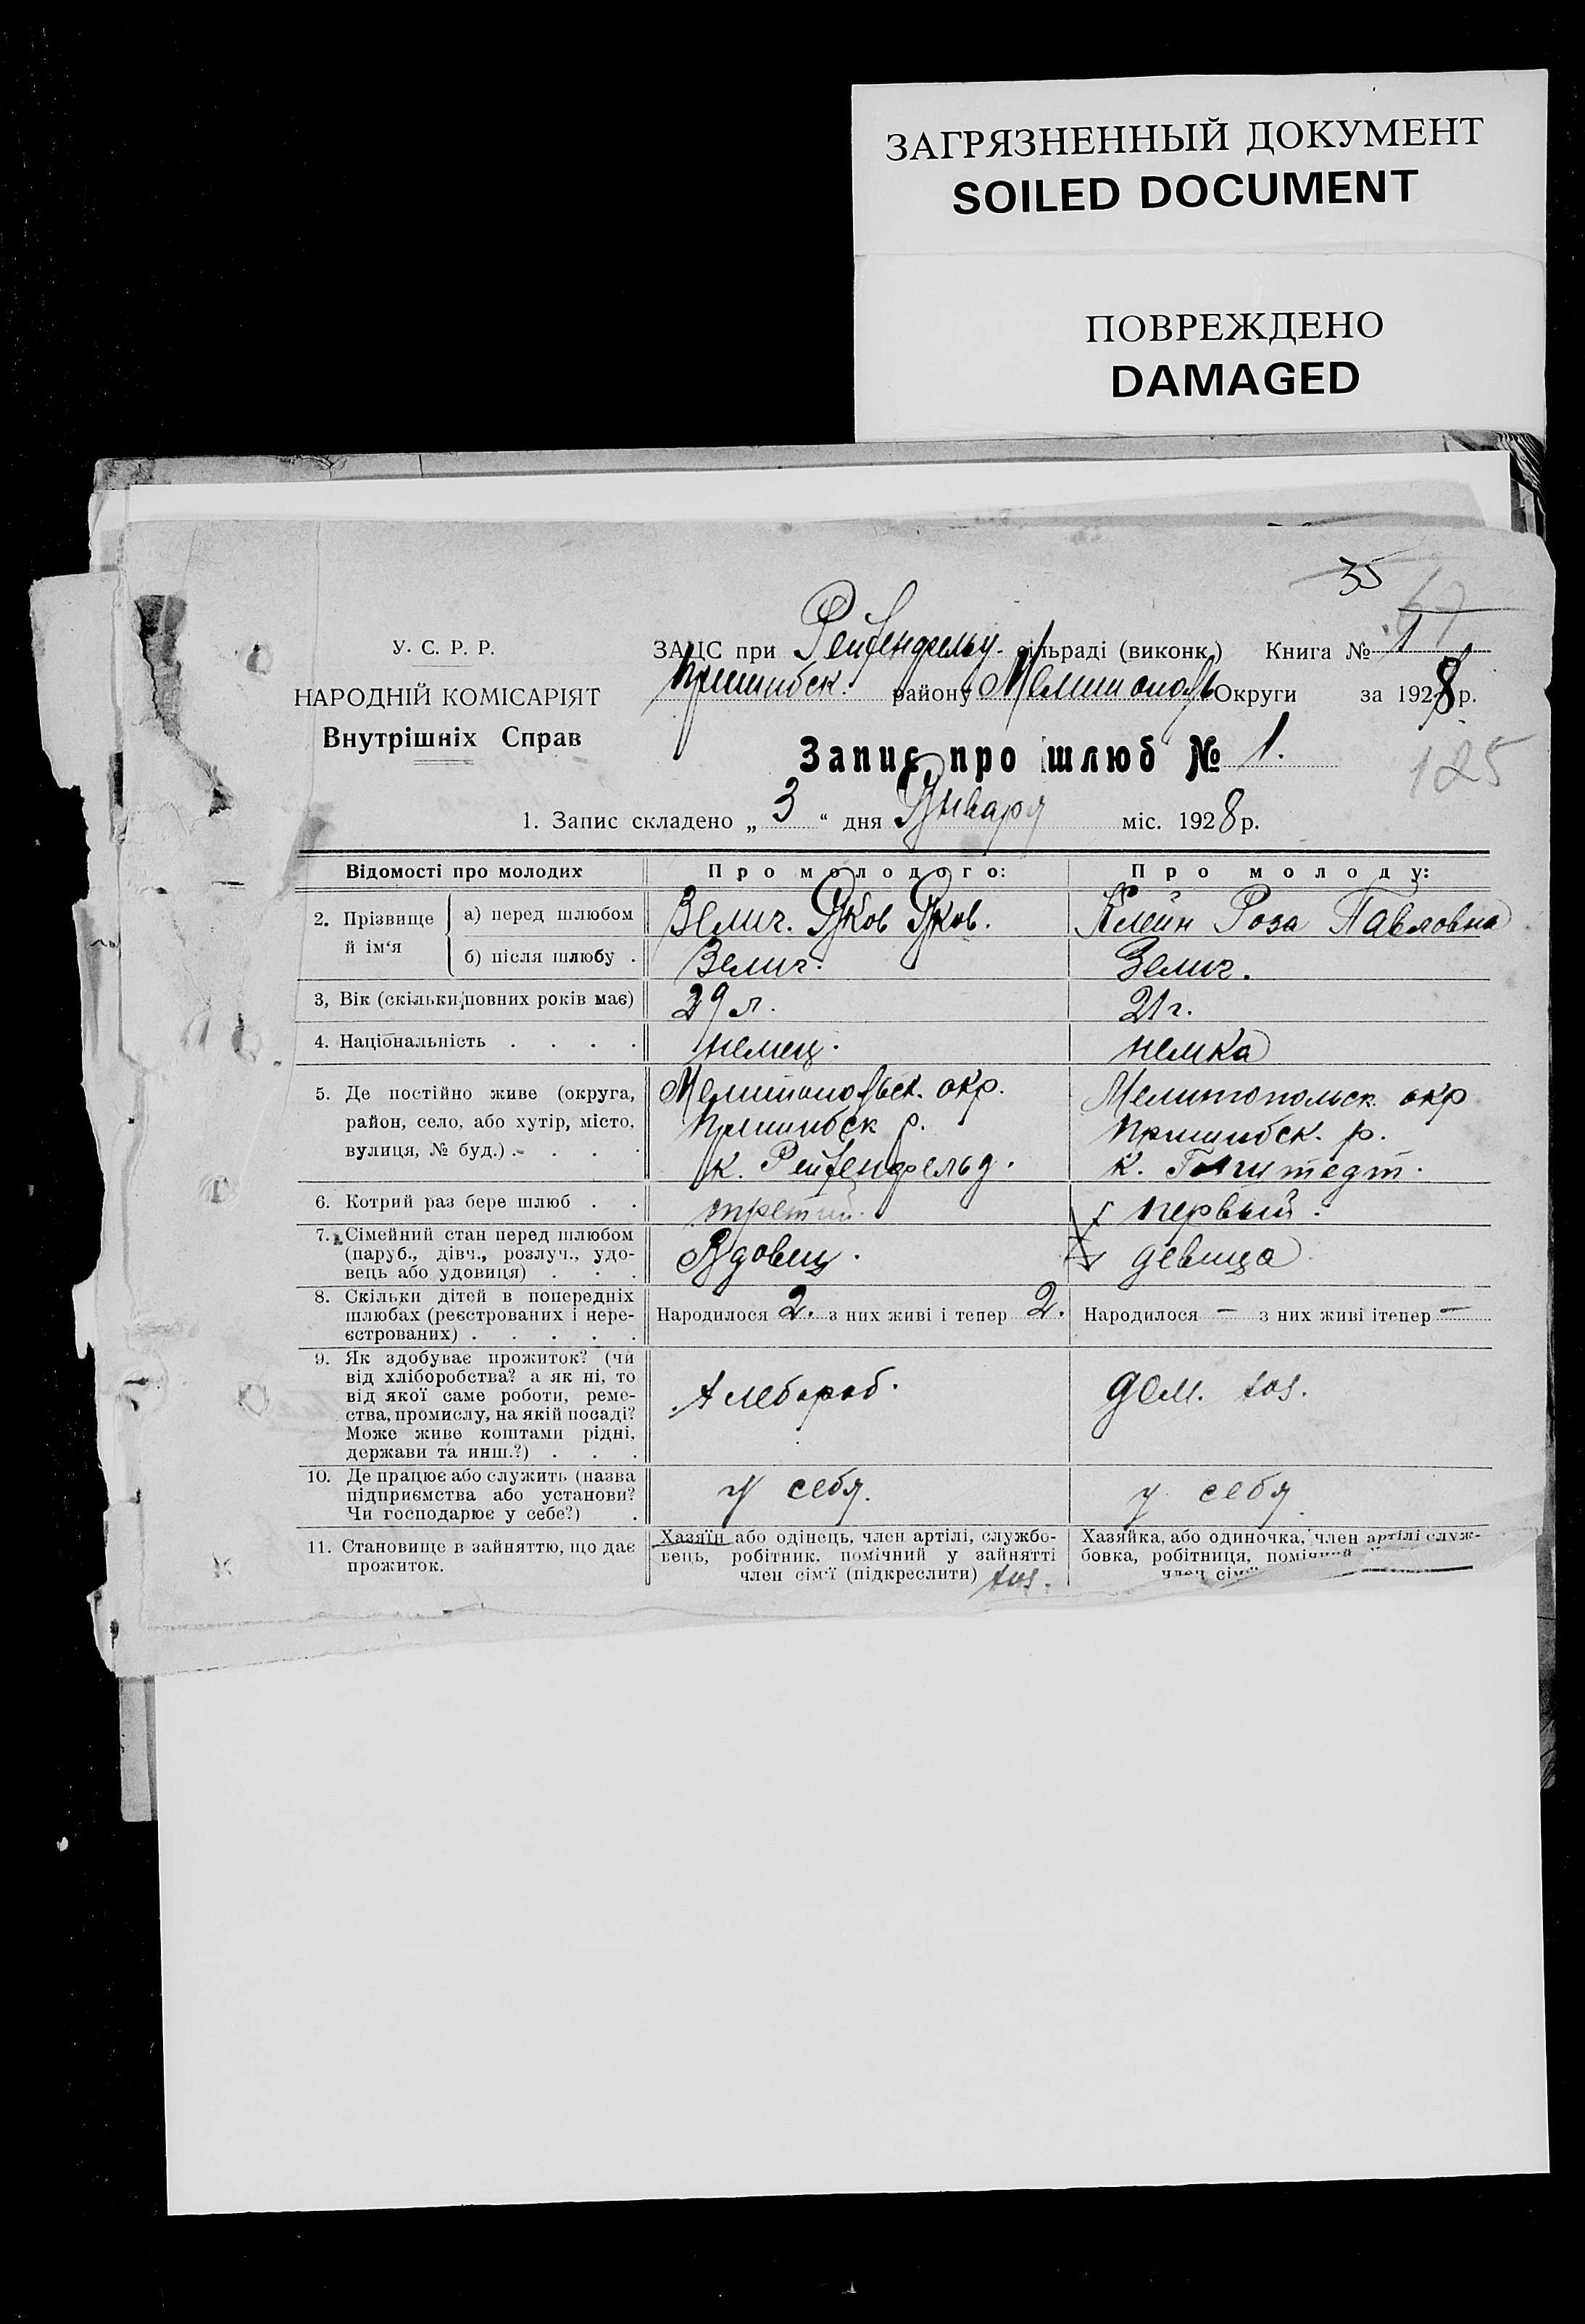 ЗАГРЯЗНЕННЫЙ ДОКУМЕНТ
SOILED DOCUMENT
ПОВРЕЖДЕНО
DAMAGED
35
67
У. С. Р. Р.
НАРОДНІЙ КОМІСАРІЯТ
Внутрішніх Справ
ЗАЦС при Рейфенфельд. сільраді (виконк.) Книга № 1
Пришибск. району Мелитополь Округи за 1928 р.
Запис про шлюб № 1.
125
1. Запис складено „ 3 “ дня Января міс. 1928 р.
Відомості про молодих Про молодого: Про молоду:
2. Прізвище й ім‘я
а) перед шлюбом Велич. Яков Яков. Клейн Роза Павловна
б) після шлюбу . Велич. Велич.
3, Вік (скільки повних років має) 29 л. 21 г.
4. Національність . . . . немец. немка
5. Де постійно живе (округа, Мелитопольск. окр. Мелитопольск. окр
район, село, або хутір, місто, Пришибск р. Пришибск. р.
вулиця, № буд.) . . . . к. Рейфенфельд. к.
6. Котрий раз бере шлюб . . третий. первый.
7. Сімейний стан перед шлюбом
(паруб., дівч., розлуч., удо-
вець або удовиця) . . . Вдовец. девица
8. Скільки дітей в попередніх
шлюбах (реєстрованих і нере-
єстрованих) . . . . . Народилося 2. з них живі і тепер 2. Народилося — з них живі ітепер —
9. Як здобуває прожиток? (чи
від хліборобства? а як ні, то
від якої саме роботи, реме-
ства, промислу, на якій посаді?
Може живе коштами рідні,
держави та инш.?) . . . Хлебороб. дом. хоз.
10. Де працює або служить (назва
підприємства або установи?
Чи господарює у себе?) . у себя. у себя.
11. Становище в зайняттю, що дає
прожиток.
Хазяїн або одінець, член артілі, службо-
вець, робітник, помічний у зайнятті
член сім‘ї (підкреслити) хоз.
Хазяйка, або одиночка, член артілі служ-
бовка, робітниця, помічний
член сім‘ї